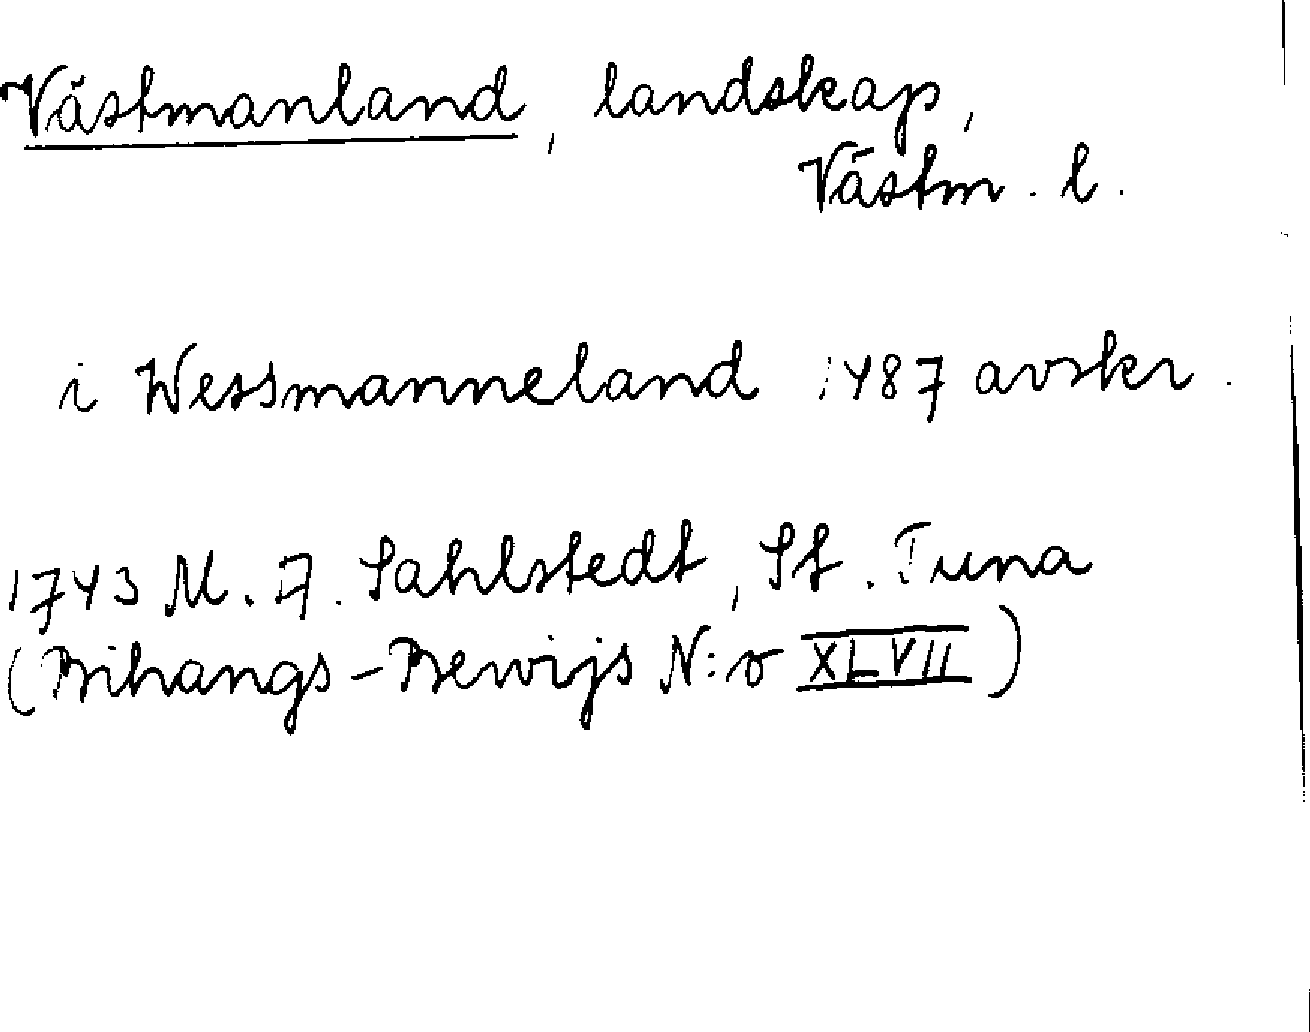 Västmanland, landskap,
Västm. l.
i Wessmanneland 1487 avskr.
1743 M. A. Sahlstedt, St. Tuna
(Bihangs-Bewijs N:o XLVII)